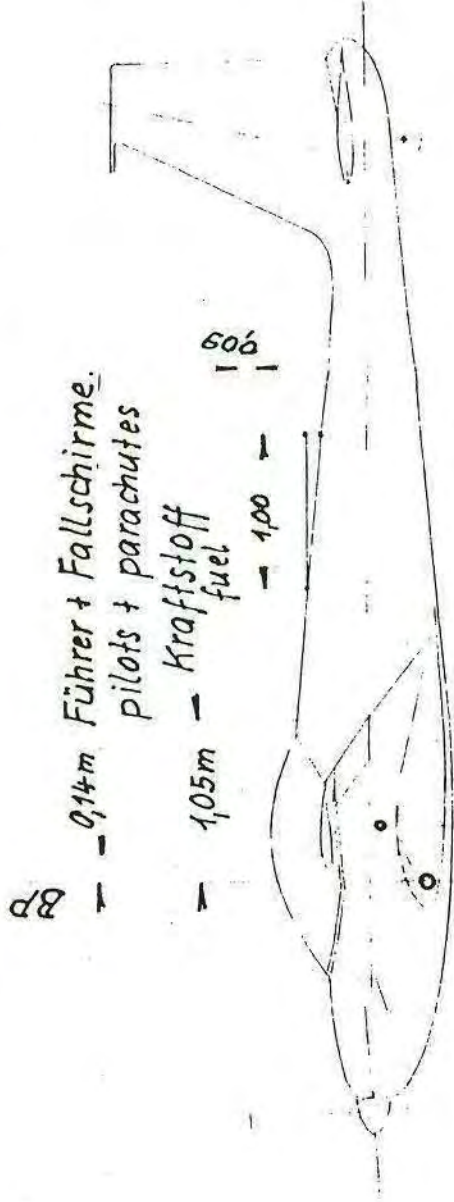 BP
0,14m Führer + Fallschirme.
pilots + parachutes
1,05m Kraftstoff
fuel
0,09
1,00